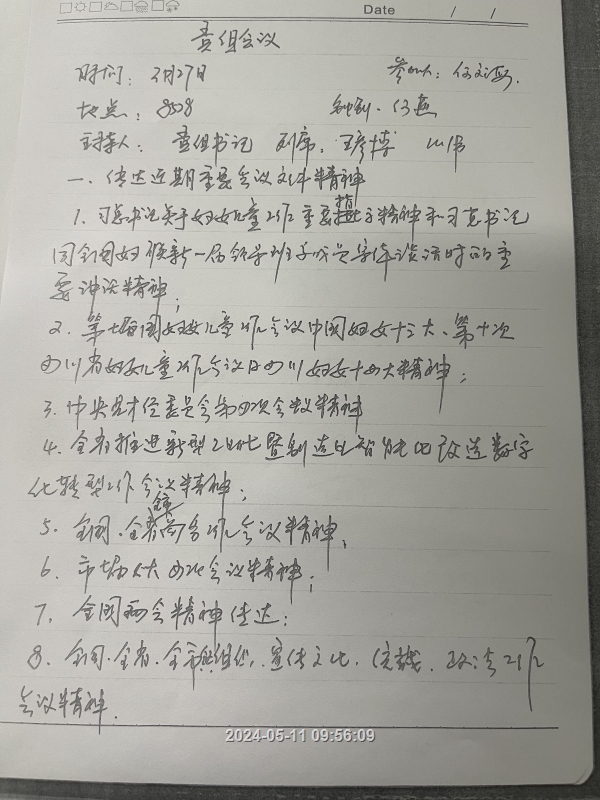 Date / /
党组会议
时间：3月27日
地点：8508
主持人：党组书记 列席：
一、传达近期重要会议文件精神
1. 习总书记关于妇女儿童工作重要指示精神和习总书记
同全国妇联新一届领导班子成员集体谈话时的重
要讲话精神；
2. 第七届全国妇女儿童工作会议中国妇女十三大、第十次
四川省妇女儿童工作会议及四川妇女十四大精神；
3. 中央财经委员会第四次会议精神
4. 全省推进新型工业化暨制造业智能化改造数字
化转型工作会议精神；
5. 全国、全省商务工作会议精神；
6. 会议精神；
7. 全国两会精神传达；
8. 全国、全省、全市组织、宣传文化、统战、政法工作
会议精神.
2024-05-11 09:56:09